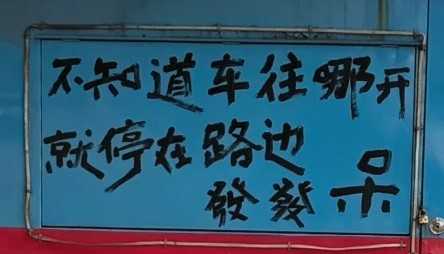 不知道车往哪开
就停在路边
發發呆